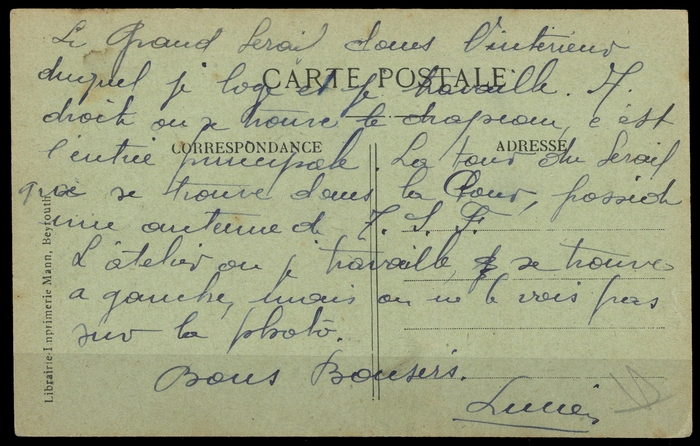 Le Grand Serail dans l'intérieur
duquel je loge et je travaille. A
CARTE POSTALE
droite ou se trouve le drapeau, c'est
l'entrée principale. La tour du Serail
CORRESPONDANCE
ADRESSE
qui se trouve dans la Cour, possède
une antenne d T.S.F.
L'atelier ou je travaille, se trouve
a gauche, mais on ne le vois pas
sur la photo.
Bons Baisers.
Lucien
Librairie-Imprimerie Mann, Beyrouth